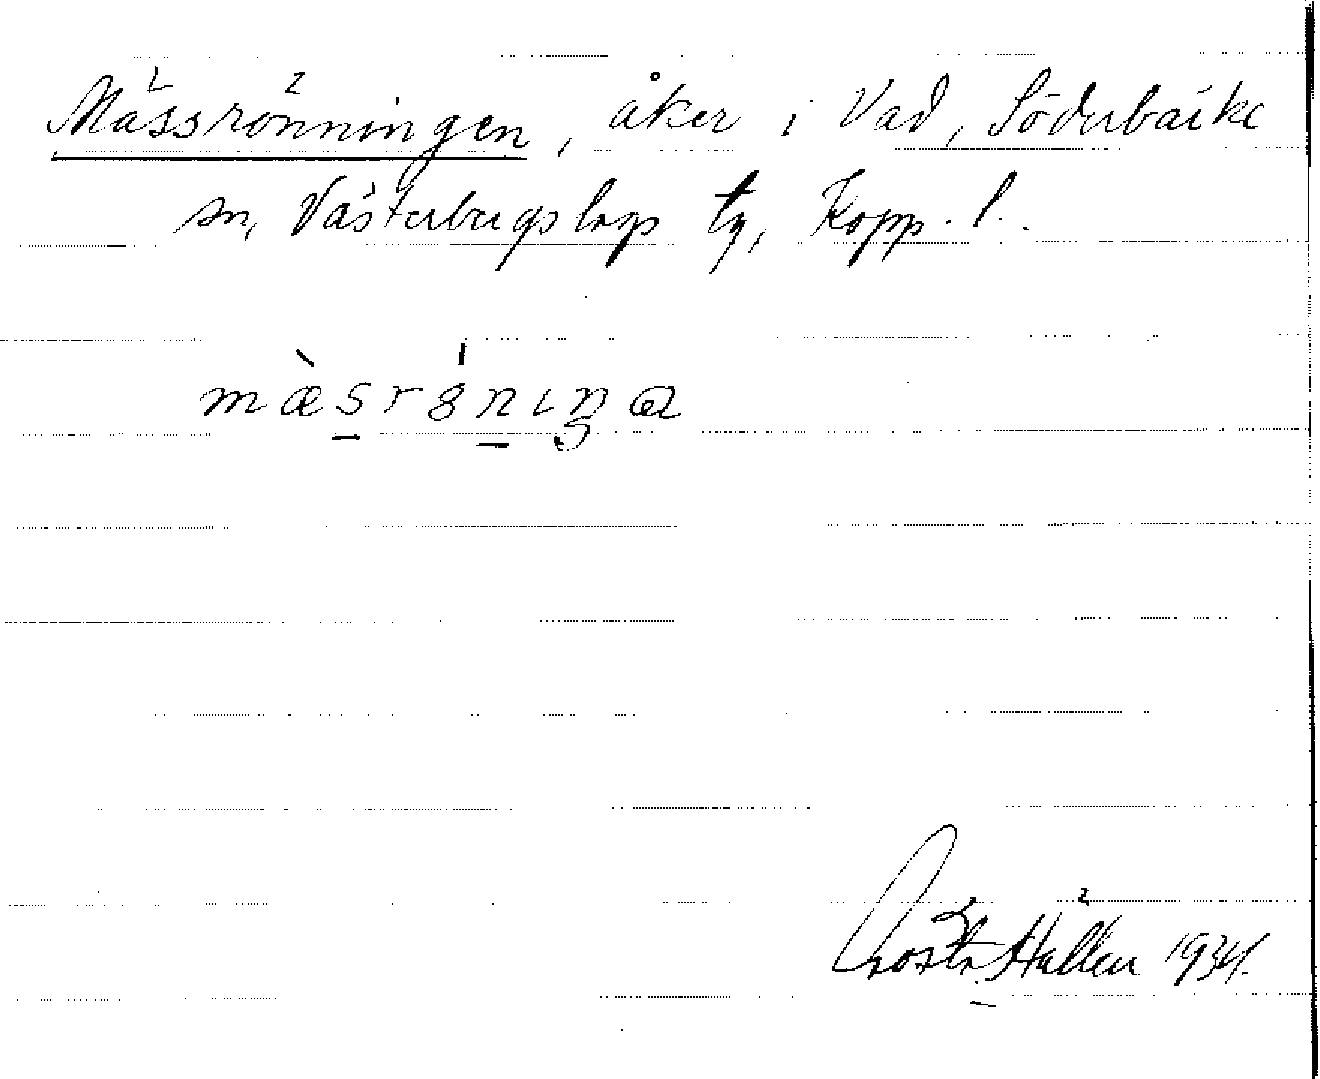 Mässrönningen, åker i Vad, Söderbärke
sn, Västerbergslags tg, Kopp. l.
mæ̀sr8́nıŋɑ
Gösta Hallén 1934.